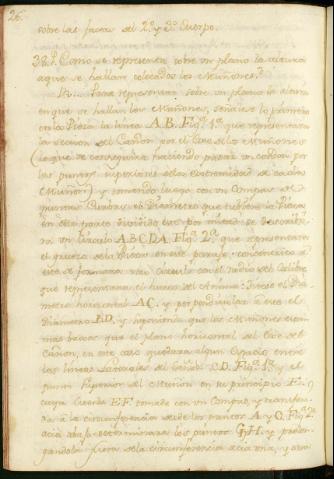 26.
sobre las faxas del 2º y 3º Cuerpo.
38. P. Como se representa sobre un plano la altura
a que se hallan colocados los Muñones?
R. Para representar sobre un plano la altura
en que se hallan los Muñones, se
en la Pieza la linea A.B. Figª 1ª que representará
la seccion del Cañon por el Exe de los Muñones
(lo que se conseguirá haciendo pasar un cordon por
los puntos superiores de la extremidad de cada
Muñon) y tomando luego con un Compas de
puntas Curvas el Diametro que tubiere la Pieza
en esta parte dividido este por mitad se descrivi-
rá un Circulo A.B.C.D.A. Figª 2ª que representará
el grueso de la Pieza en este parage: concentrico á
este se formará otro circulo con el radio del Calibre
que representará el hueco del Anima: Tirese el Dia-
metro horizontal A.C. y perpendicular á este el
Diametro B.D. y suponiendo que los Muñones esten
mas baxos que el plano horizontal del Exe del
Cañon, en este caso quedará algun Espacio entre
las lineas del Cañon C.D. Figª 1ª y el
punto superior del Muñon en su principio E.
cuya Cuerda E.F. tomada con un Compas, y transferi-
da á la circunferencia desde los puntos A. y C. Figª 2ª
acia abaxo determinará los puntos G. H. y prolon-
gandola fuera de la circunferencia acia una, y otra